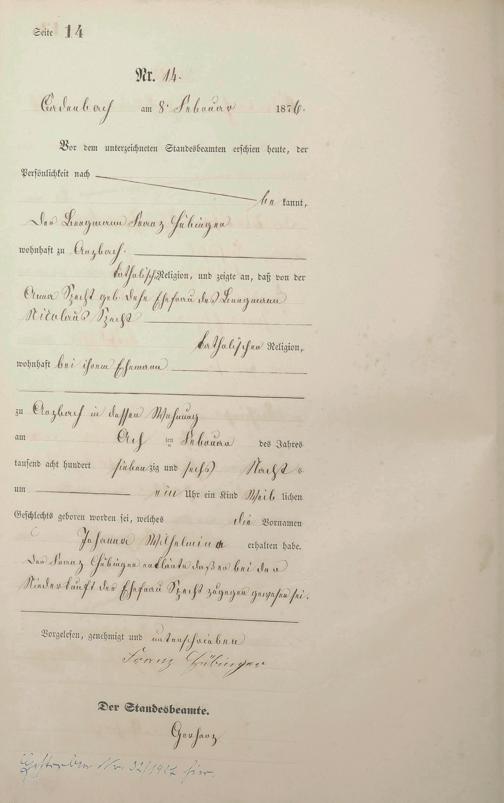 Seite 14
Nr. 14.
Cadenbach am 8. Februar 1876.
Vor dem unterzeichneten Standesbeamten erschien heute, der
Persönlichkeit nach
be kannt,
Der Bergmann Franz Hübinger
wohnhaft zu Arzbach.
katholischer Religion, und zeigte an, daß von der
Anna Specht geb. Ehefrau des Bergmann
Nicolaus Specht
katholischer Religion,
wohnhaft bei ihrem Ehemann
zu Arzbach in dessen Wohnung
am ten Februar des Jahres
tausend acht hundert siebenzig und sechs Nachts
um ein Uhr ein Kind Weib lichen
Geschlechts geboren worden sei, welches die Vornamen
Johanna Wilhelmina erhalten habe.
Der Franz Hübinger erklärte daß er bei der
Niederkunft der Ehefrau Specht zugegen gewesen sei.
Vorgelesen, genehmigt und unterschrieben
Franz Hübinger
Der Standesbeamte.
Gerharz
Gestorben Nr. 32/1927 hier.